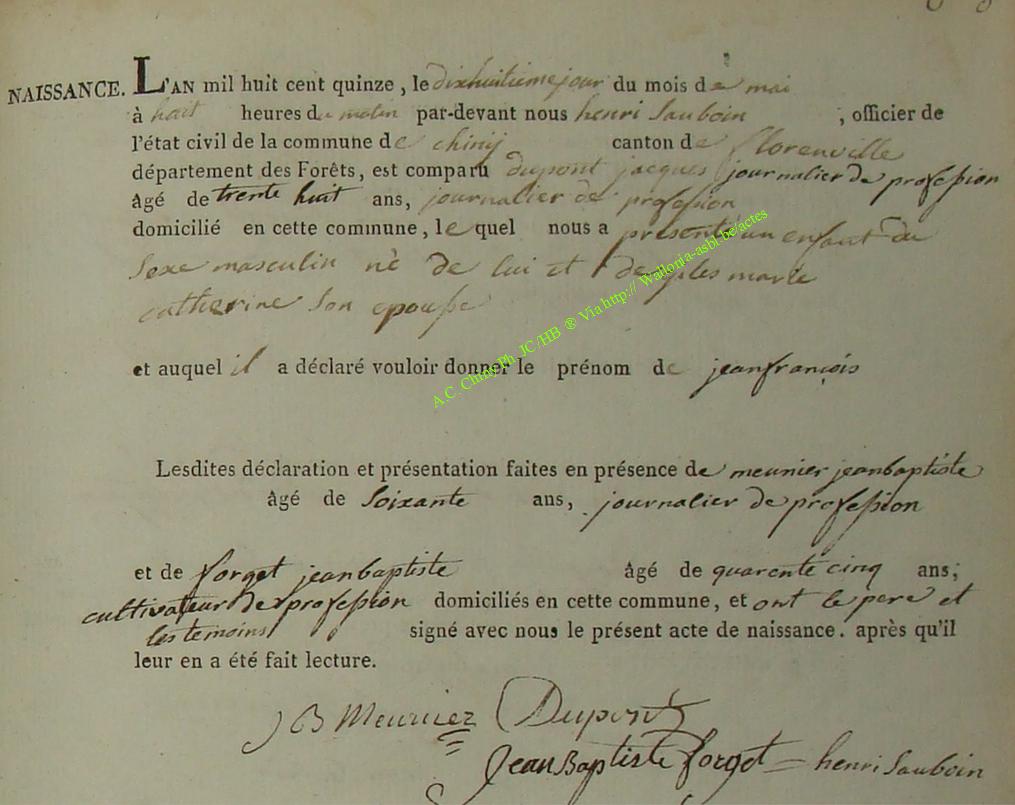 NAISSANCE. L'AN mil huit cent quinze, le dixhuitieme jour du mois de mai
à huit heures du matin par-devant nous henri Sauboin, officier de
l'état civil de la commune de chiny canton de florenville
département des Forêts, est comparu dupont jacques journalier de profession
âgé de trente huit ans, journalier de profession
domicilié en cette commune, le quel nous a presenté un enfant du
Sexe masculin né de lui et de marie
catherine Son epouse
et auquel il a déclaré vouloir donner le prénom de jeanfrançois
A.C. Chiny Ph JC/HB ® Via http://Walloria-asbl.be/actes
Lesdites déclaration et présentation faites en présence de meunier jeanbaptiste
âgé de Soixante ans, journalier de profession
et de forget jeanbaptiste âgé de quarente cinq ans,
cultivateur de profession domiciliés en cette commune, et ont le pere et
les temoins signé avec nous le présent acte de naissance. après qu'il
leur en a été fait lecture.
JB Meunier Dupont
Jean Baptiste forget henri Sauboin